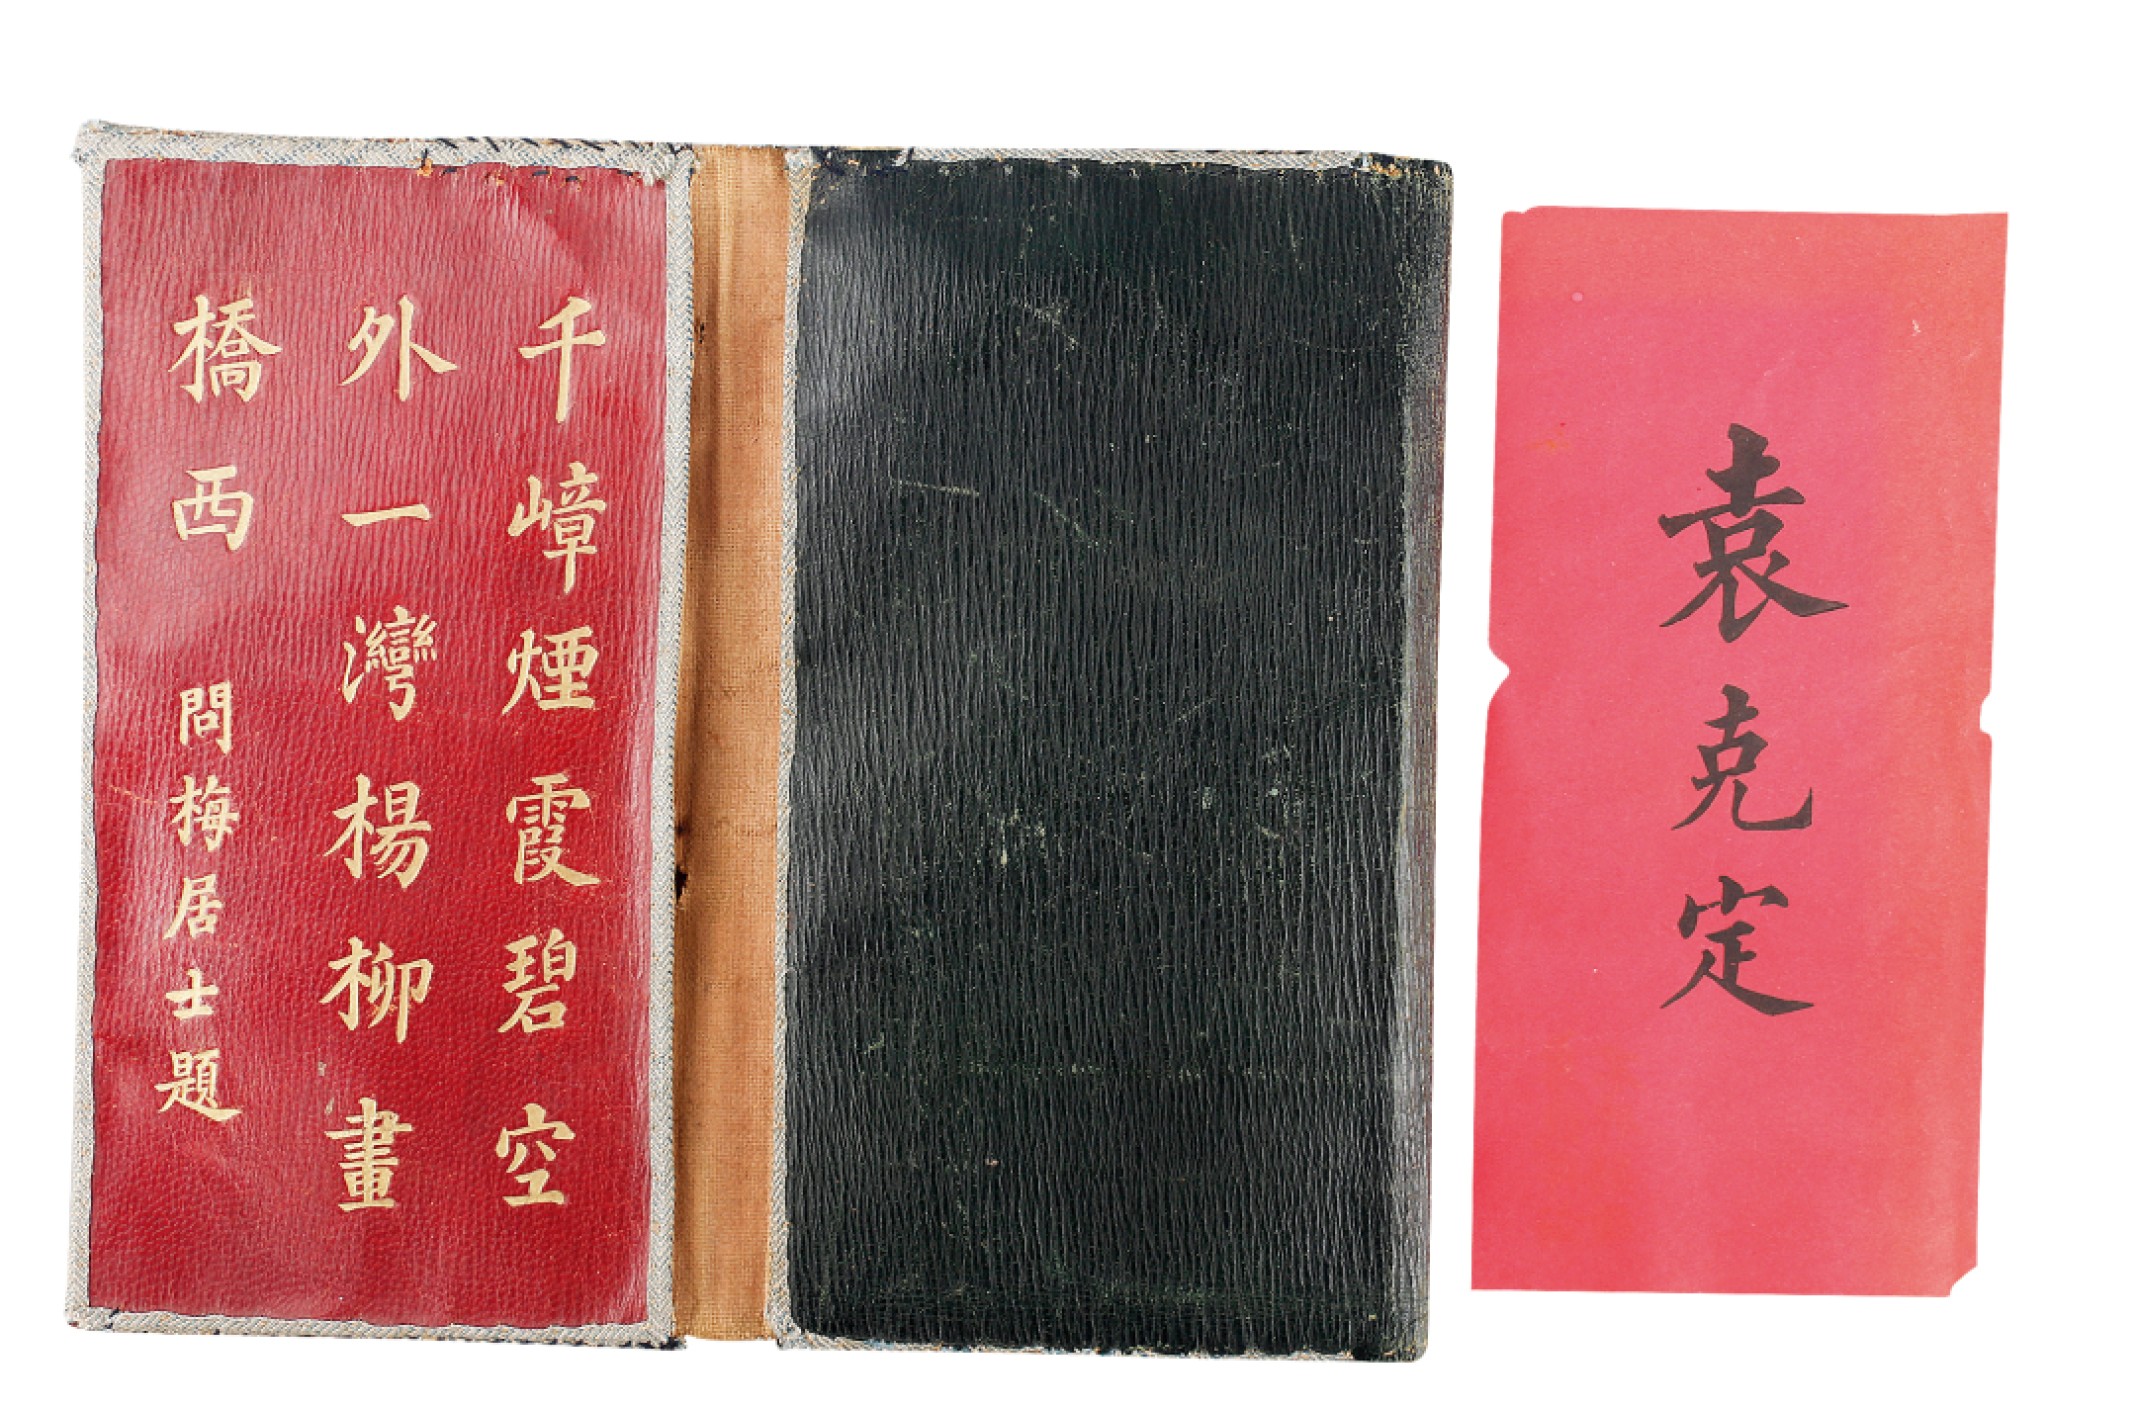 袁克定
千嶂煙霞碧空
外一灣楊柳畫
橋西
問梅居士題